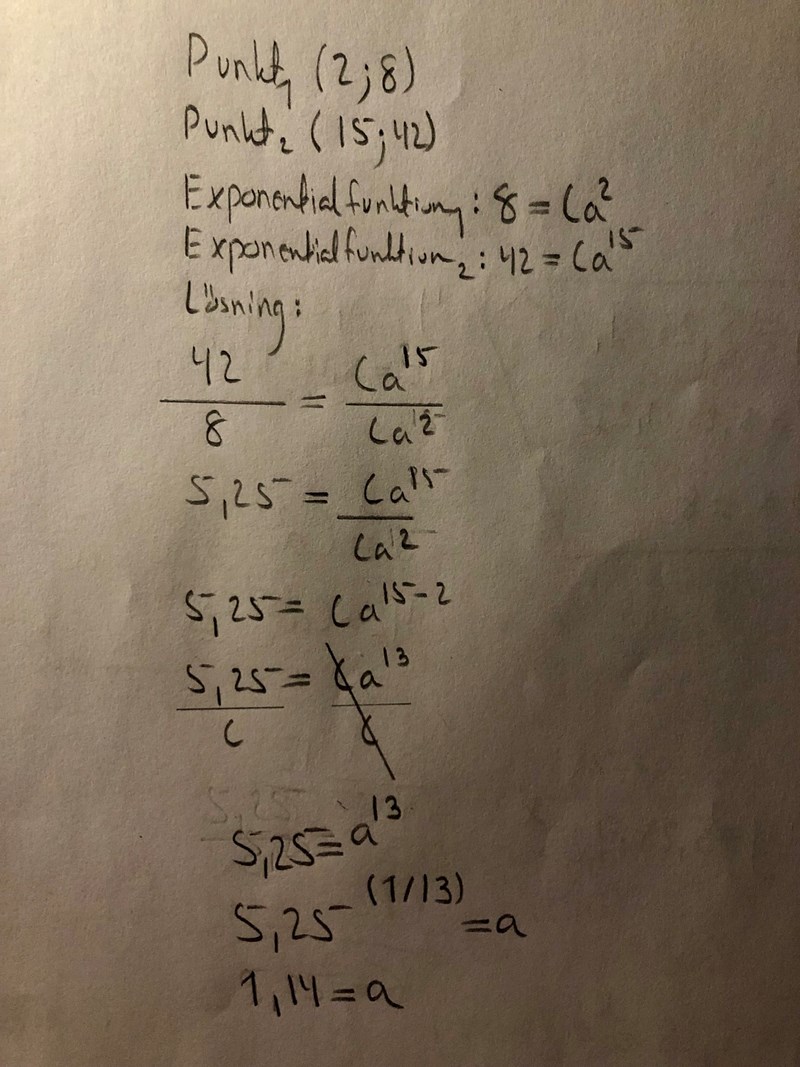 Punkt₁ (2;8)
Punkt₂ (15;42)
Exponentialfunktion₁: 8 = Ca²
Exponentialfunktion₂: 42 = Ca¹⁵
Lösning:
42/8 = Ca¹⁵/Ca²
5,25 = Ca¹⁵/Ca²
5,25 = Ca¹⁵⁻²
5,25/C = Ca¹³/C
5,25 = a¹³
5,25^(1/13) = a
1,14 = a